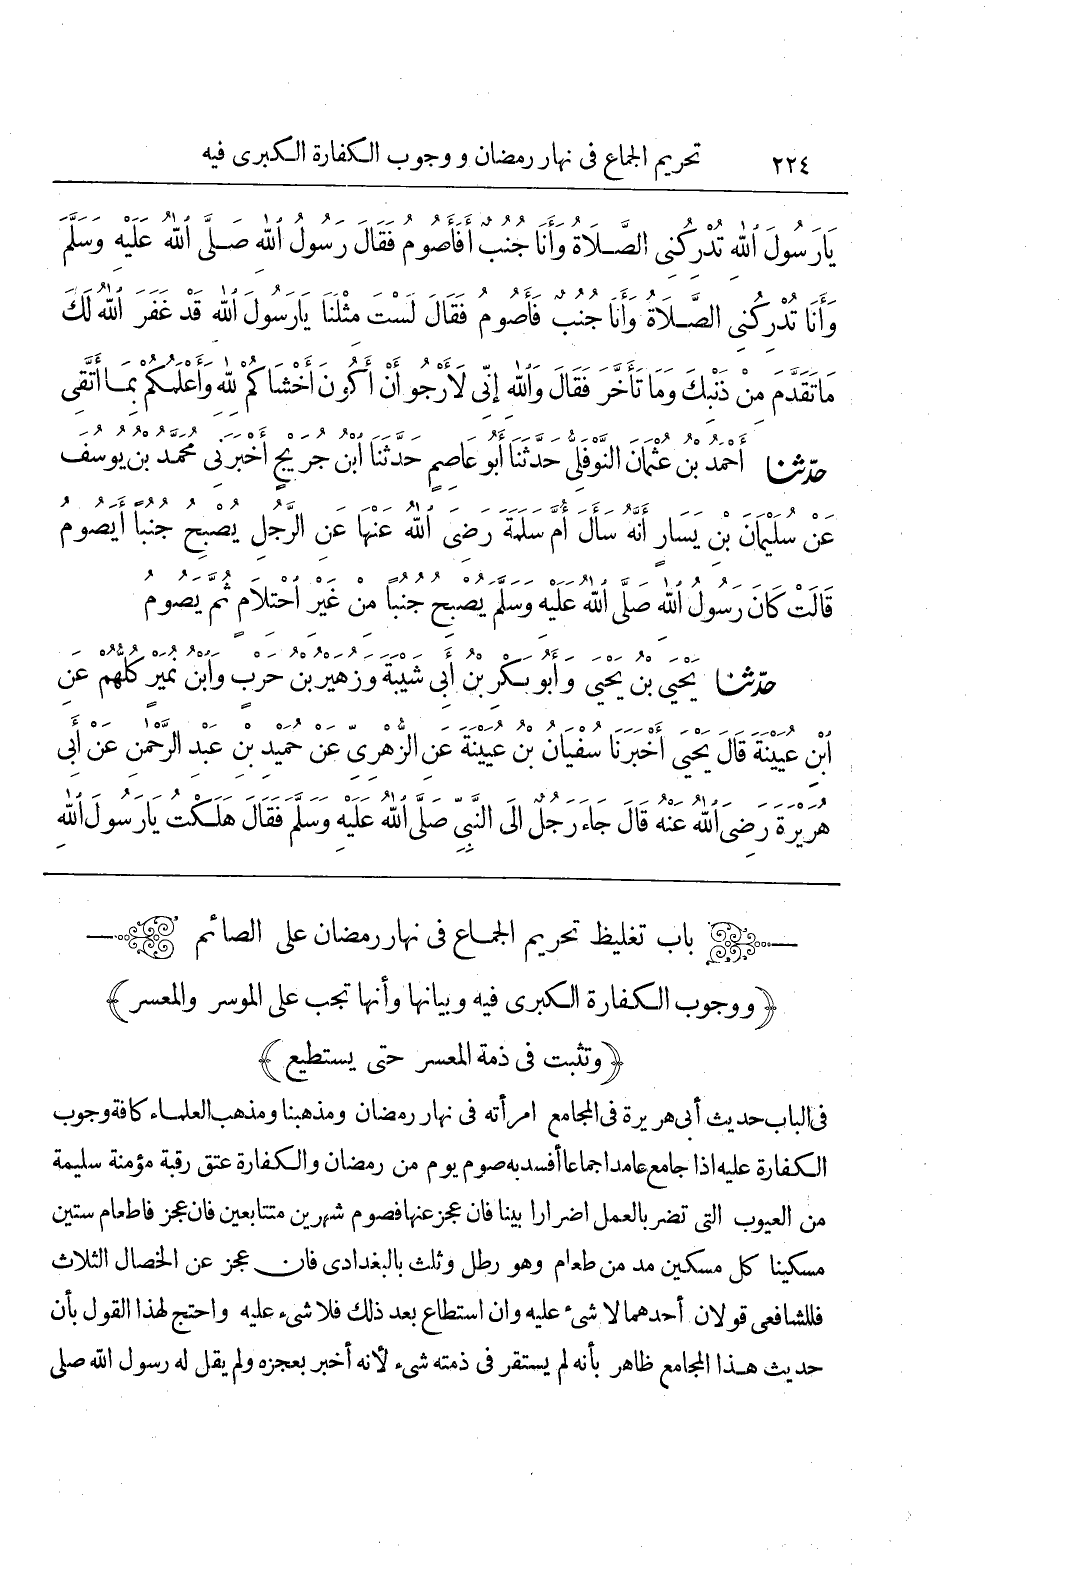 ٢٢٤ تحريم الجماع فى نهار رمضان ووجوب الكفارة الكبرى فيه
يَارَسُولَ ٱللهِ تُدْرِكُنِى الصَّلَاةُ وَأَنَا جُنُبٌ أَفَأَصُومُ فَقَالَ رَسُولُ ٱللهِ صَلَّى ٱللهُ عَلَيْهِ وَسَلَّمَ
وَأَنَا تُدْرِكُنِى الصَّلَاةُ وَأَنَا جُنُبٌ فَأَصُومُ فَقَالَ لَسْتَ مِثْلَنَا يَارَسُولَ ٱللهِ قَدْ غَفَرَ ٱللهُ لَكَ
مَاتَقَدَّمَ مِنْ ذَنْبِكَ وَمَا تَأَخَّرَ فَقَالَ وَٱللهِ إِنِّى لَأَرْجُو أَنْ أَكُونَ أَخْشَاكُمْ لِلهِ وَأَعْلَمَكُمْ بِمَا أَتَّقِى
حدّثنا أَحْمَدُ بْنُ عُثْمَانَ النَّوْفَلِىُّ حَدَّثَنَا أَبُو عَاصِمٍ حَدَّثَنَا ٱبْنُ جُرَيْجٍ أَخْبَرَنِى مُحَمَّدُ بْنُ يُوسُفَ
عَنْ سُلَيْمَانَ بْنِ يَسَارٍ أَنَّهُ سَأَلَ أُمَّ سَلَمَةَ رَضِىَ ٱللهُ عَنْهَا عَنِ الرَّجُلِ يُصْبِحُ جُنُبًا أَيَصُومُ
قَالَتْ كَانَ رَسُولُ ٱللهِ صَلَّى ٱللهُ عَلَيْهِ وَسَلَّمَ يُصْبِحُ جُنُبًا مِنْ غَيْرِ ٱحْتِلَامٍ ثُمَّ يَصُومُ
حدّثنا يَحْيَى بْنُ يَحْيَى وَأَبُو بَكْرِ بْنُ أَبِى شَيْبَةَ وَزُهَيْرُ بْنُ حَرْبٍ وَٱبْنُ نُمَيْرٍ كُلُّهُمْ عَنِ
ٱبْنِ عُيَيْنَةَ قَالَ يَحْيَى أَخْبَرَنَا سُفْيَانُ بْنُ عُيَيْنَةَ عَنِ الزُّهْرِىِّ عَنْ حُمَيْدِ بْنِ عَبْدِ الرَّحْمٰنِ عَنْ أَبِى
هُرَيْرَةَ رَضِىَ ٱللهُ عَنْهُ قَالَ جَاءَ رَجُلٌ الَى النَّبِىِّ صَلَّى ٱللهُ عَلَيْهِ وَسَلَّمَ فَقَالَ هَلَكْتُ يَارَسُولَ ٱللهِ
باب تغليظ تحريم الجماع فى نهار رمضان على الصائم
﴿ ووجوب الكفارة الكبرى فيه وبيانها وأنها تجب على الموسر والمعسر ﴾
﴿ وتثبت فى ذمة المعسر حتى يستطيع ﴾
فى الباب حديث أبى هريرة فى المجامع امرأته فى نهار رمضان ومذهبنا ومذهب العلماء كافة وجوب
الكفارة عليه اذا جامع عامدا جماعا أفسد به صوم يوم من رمضان والكفارة عتق رقبة مؤمنة سليمة
من العيوب التى تضر بالعمل اضرارا بينا فان عجز عنها فصوم شهرين متتابعين فان عجز فاطعام ستين
مسكينا كل مسكين مد من طعام وهو رطل وثلث بالبغدادى فان عجز عن الخصال الثلاث
فللشافعى قولان أحدهما لا شىء عليه وان استطاع بعد ذلك فلا شىء عليه واحتج لهذا القول بأن
حديث هذا المجامع ظاهر بأنه لم يستقر فى ذمته شىء لأنه أخبر بعجزه ولم يقل له رسول الله صلى